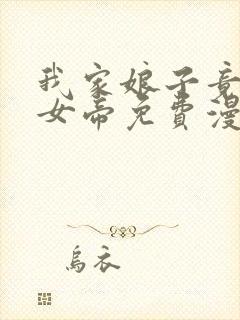 我家娘子竟
女帝免费漫
乌衣